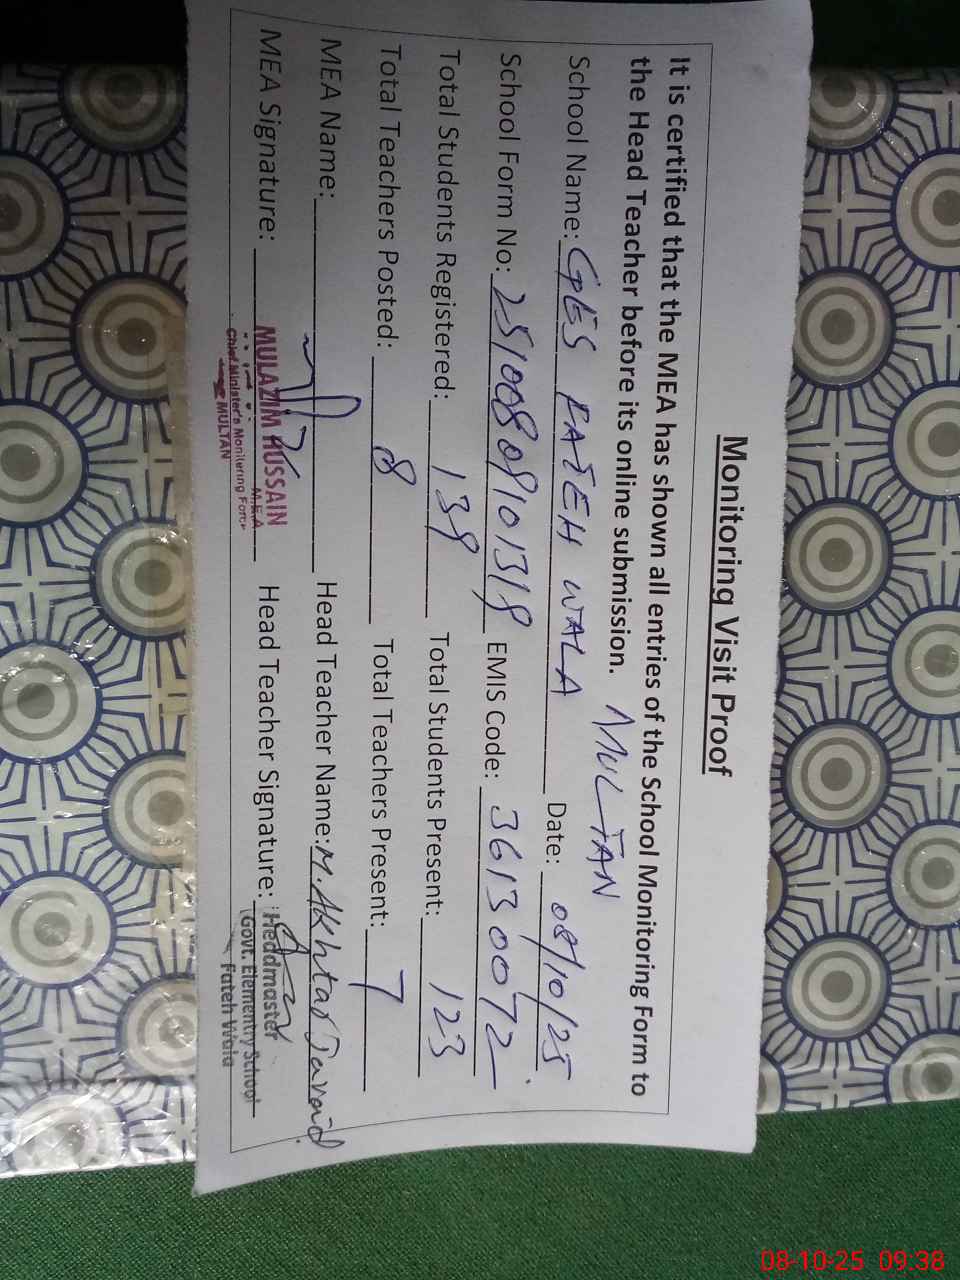 Monitoring Visit Proof
It is certified that the MEA has shown all entries of the School Monitoring Form to
the Head Teacher before its online submission.
MULTAN
School Name: GES FATEH WALA Date: 08/10/25
School Form No: 25100809101319 EMIS Code: 36130072
Total Students Registered: 139 Total Students Present: 123
Total Teachers Posted: 8 Total Teachers Present: 7
MEA Name: Head Teacher Name: M. Akhtar Javaid
MEA Signature: Head Teacher Signature:
MULAZIM HUSSAIN
M.E.A
Chief Minister's Monitering Force
MULTAN
Headmaster
Govt. Elementry School
Fateh Wala
08-10-25 09:38